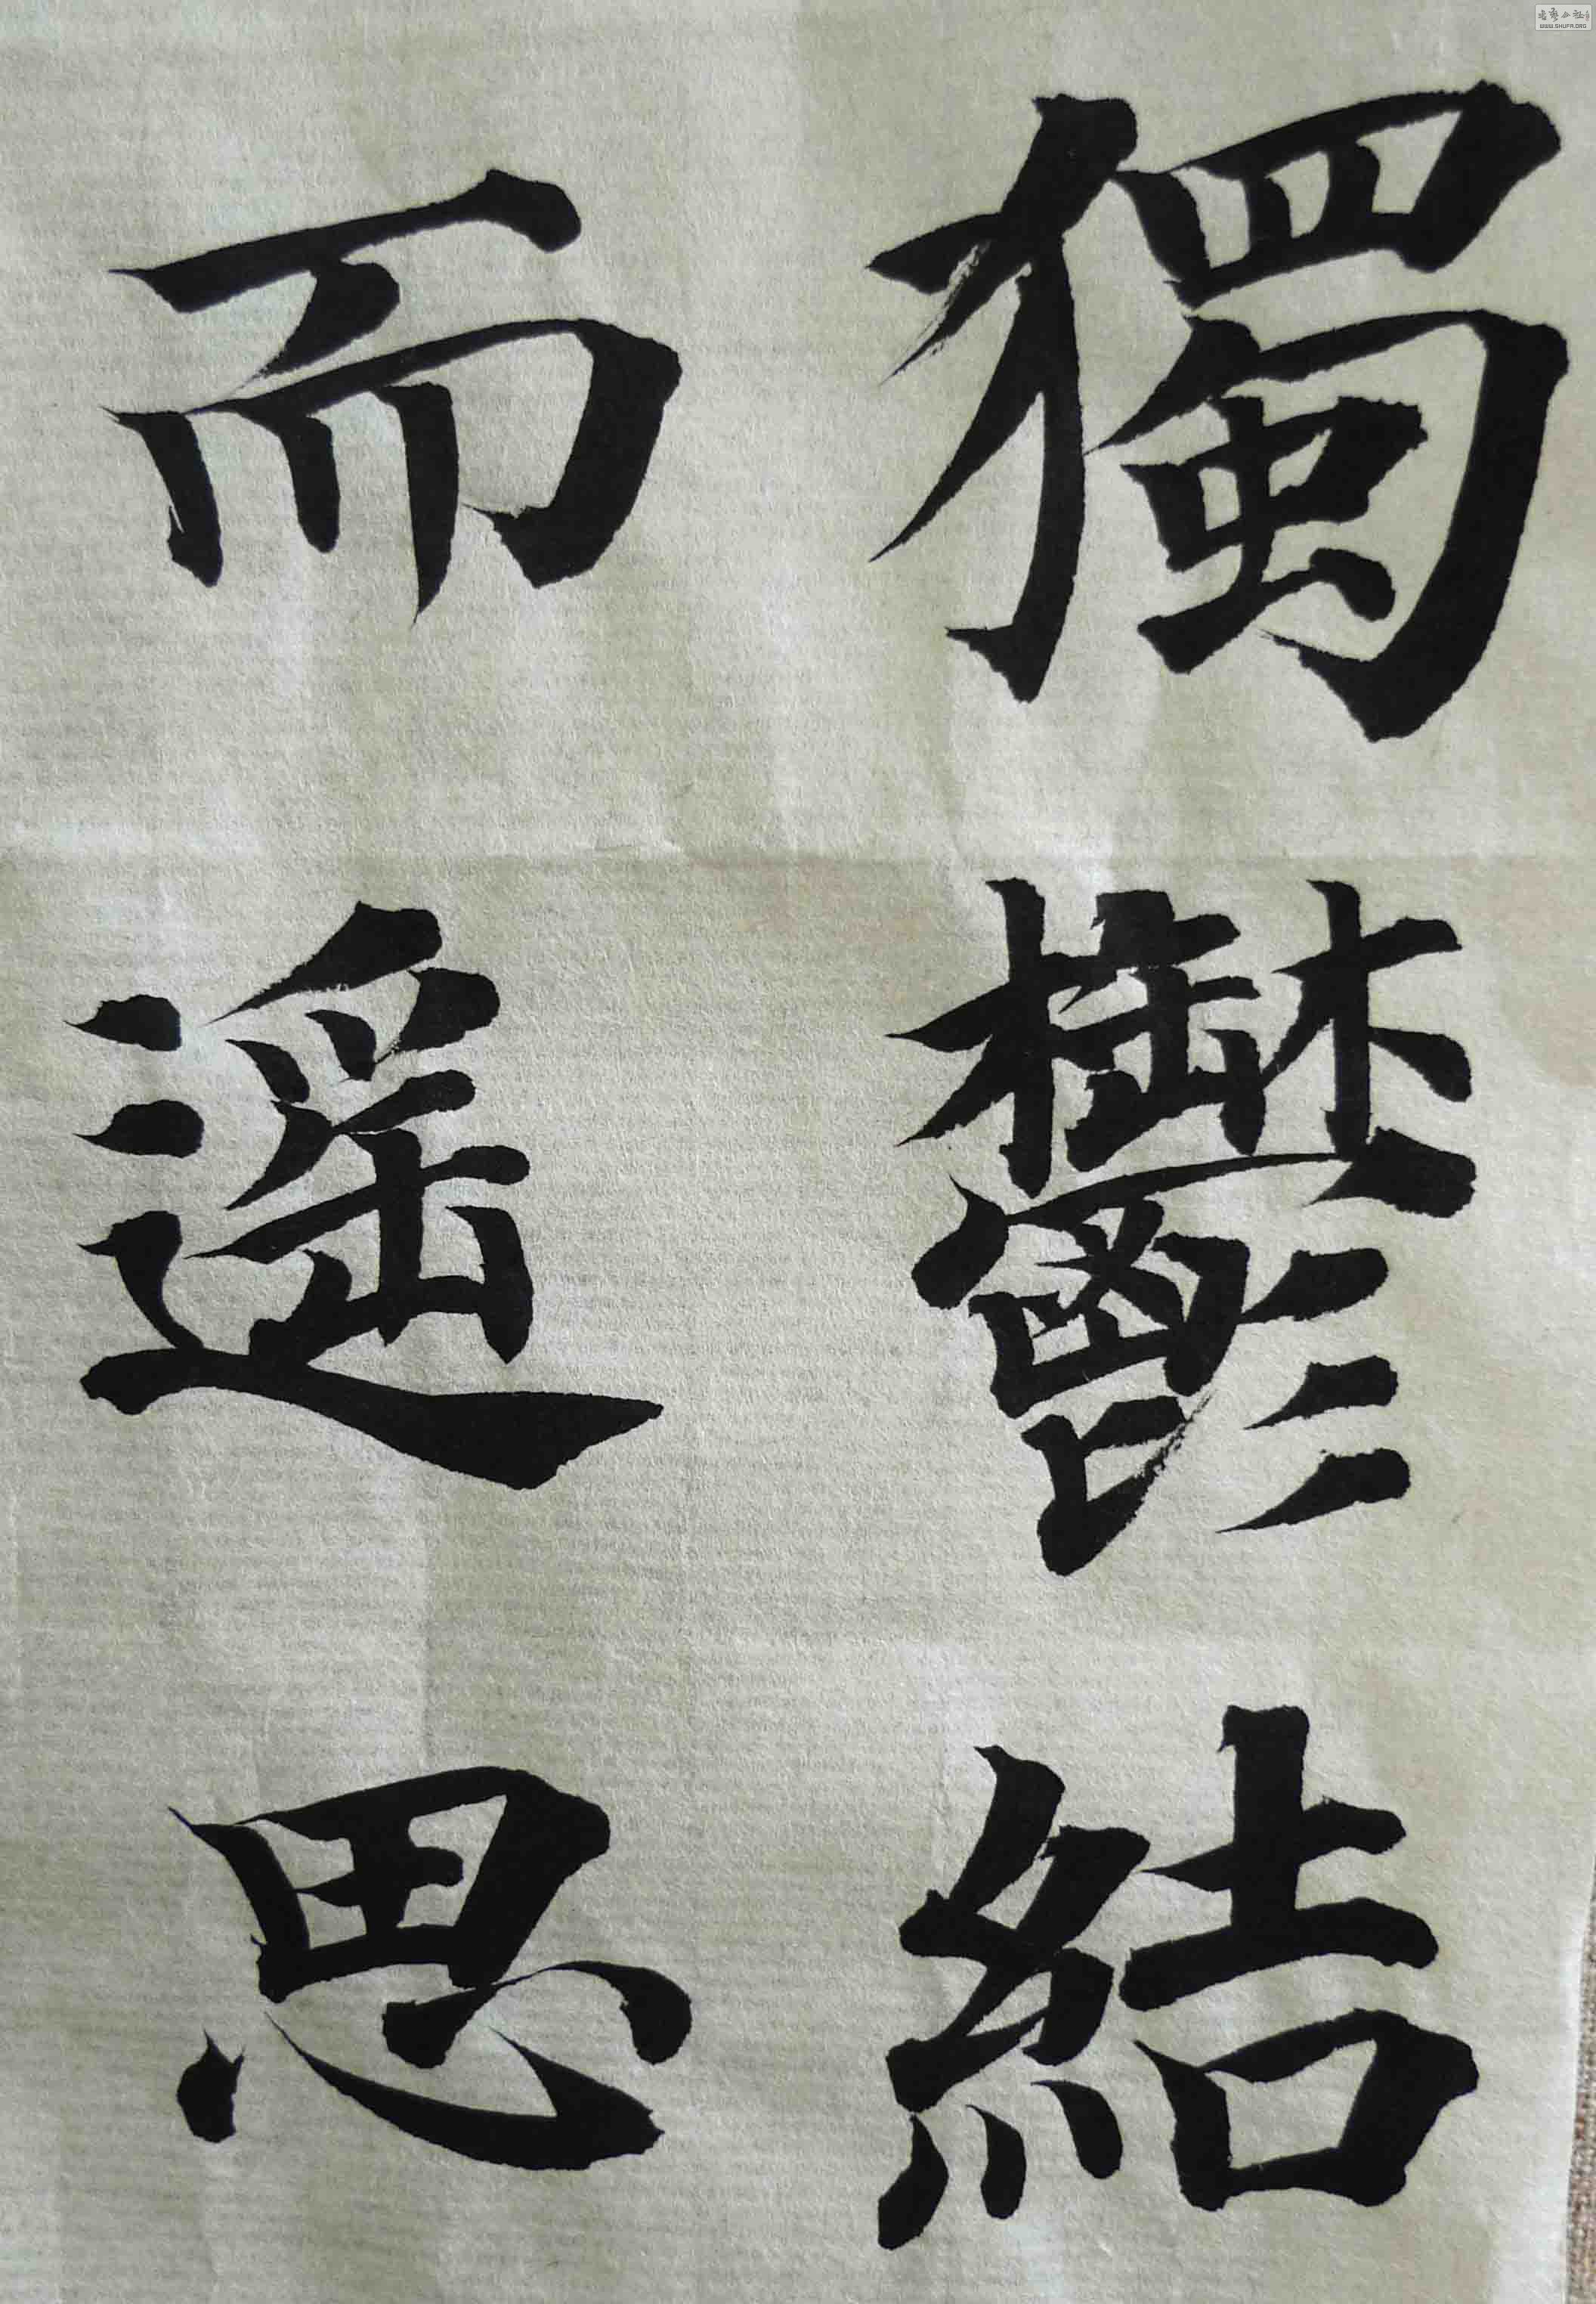 獨鬱結
而遥思
WWW.SHUFA.ORG